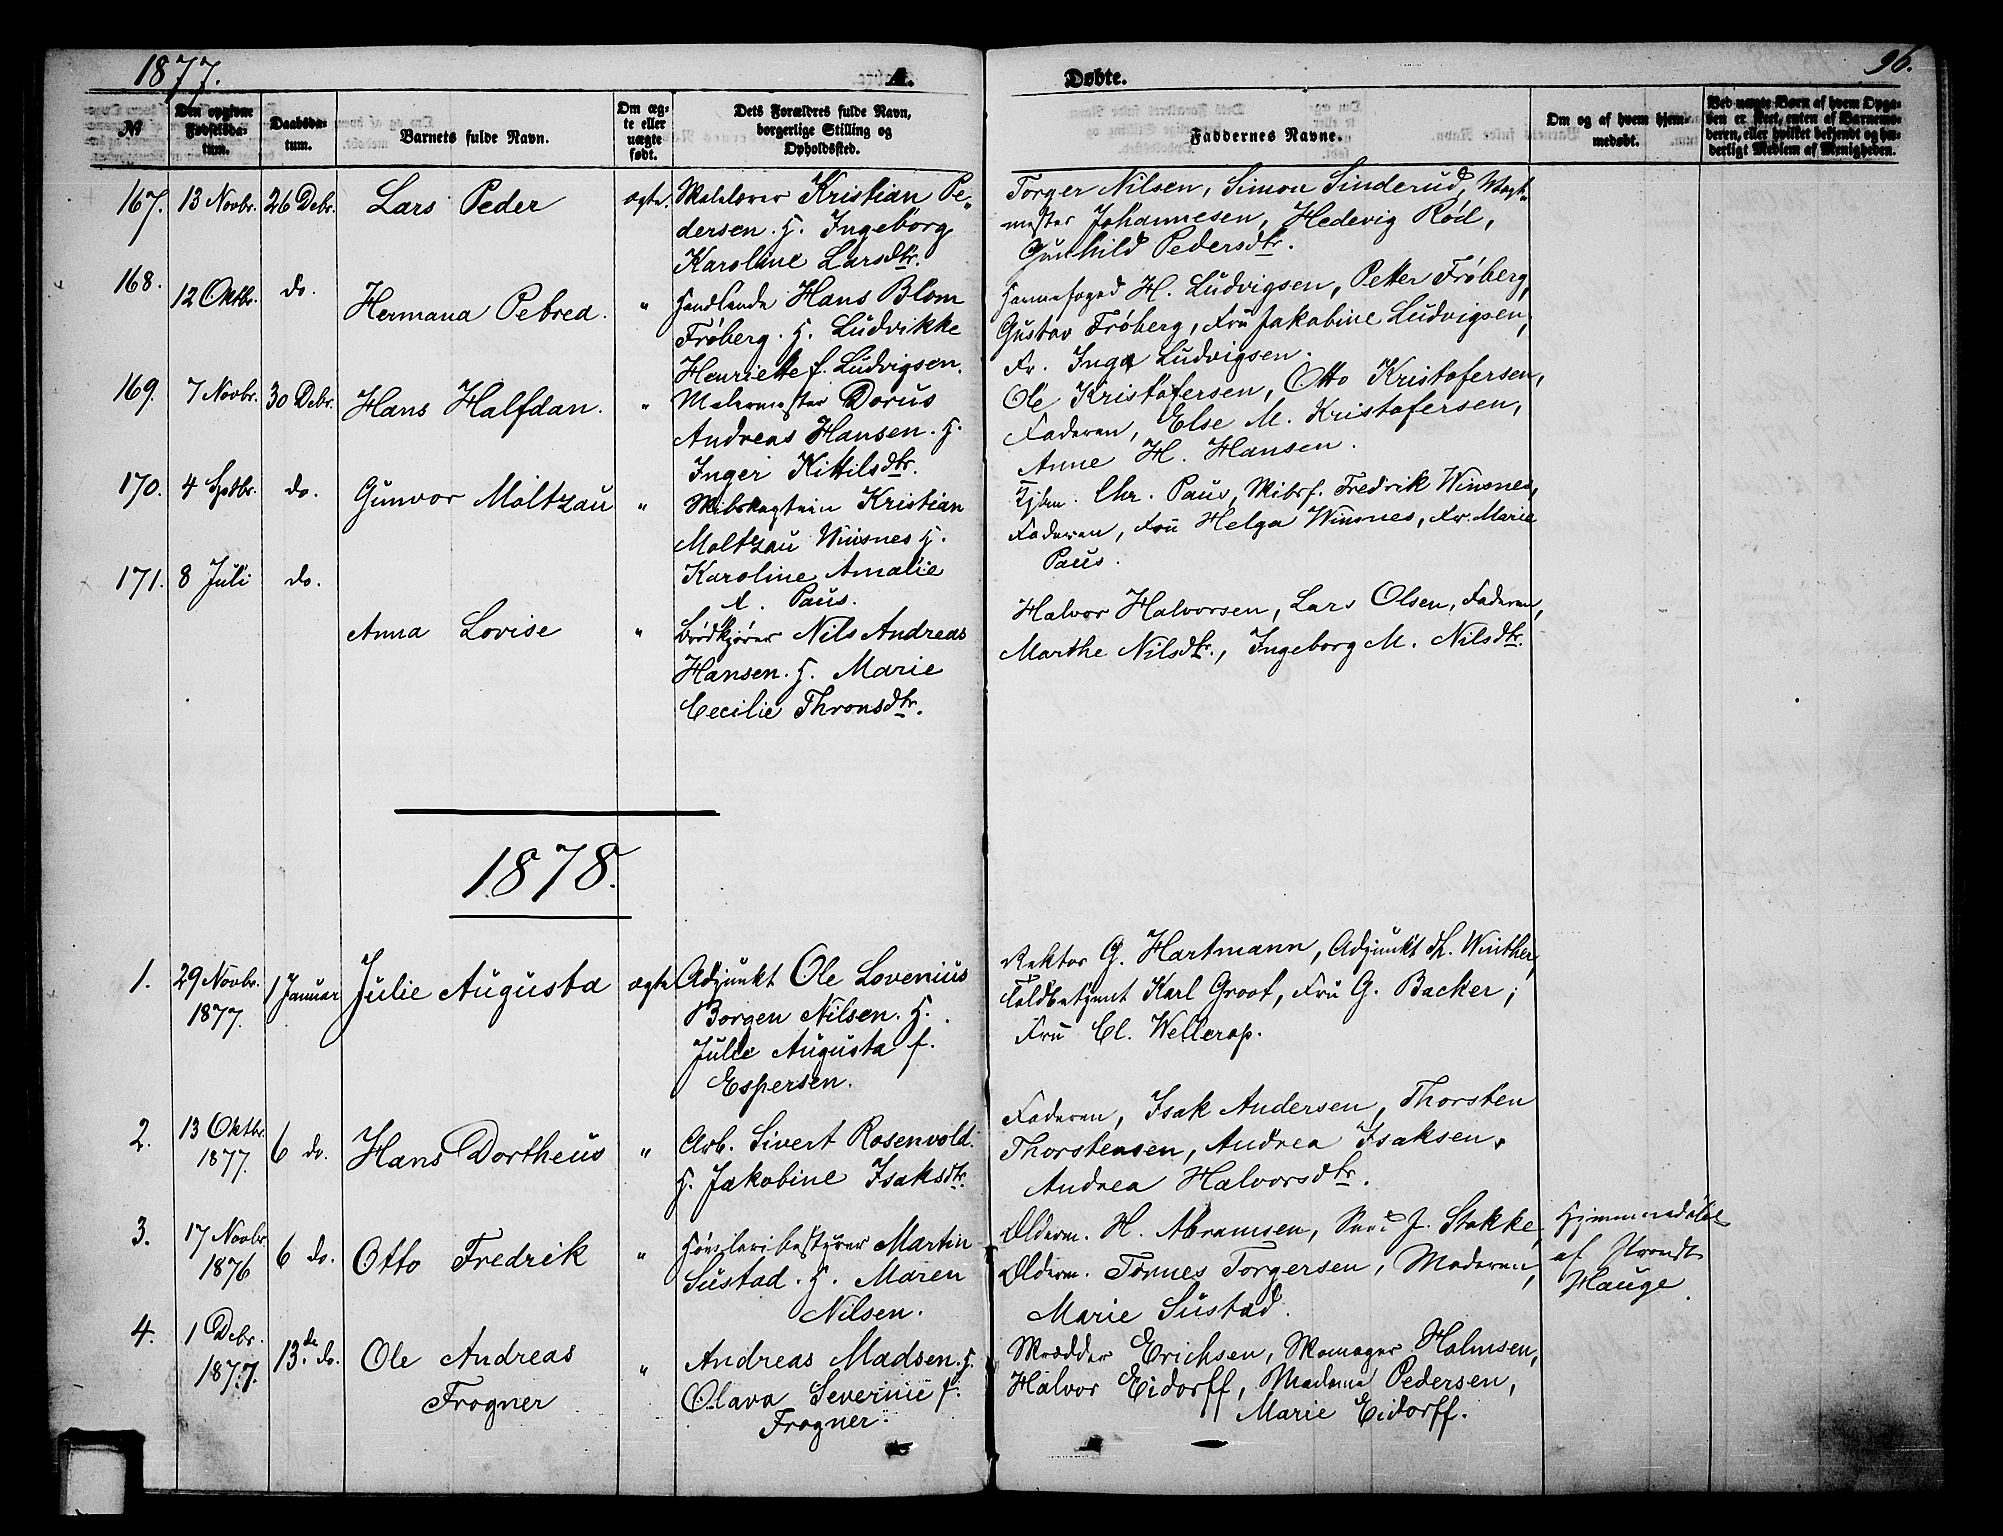 1877.
A. Døbte.
96.
№
Den opgivne Fødselsdatum.
Daabsdatum.
Barnets fulde Navn.
Om ægte eller uægte født.
Dets Forældres fulde Navn, borgerlige Stilling og Opholdssted.
Faddernes Navne.
Om og af hvem hjemmedøbt.
Ved uægte Børn af hvem Opgaven er skeet, enten af Barnemoderen, eller hvilket bekjendt og hæderligt Medlem af Menigheden.
167. 13 Novbr. 26 Debr. Lars Peder ægte.
Kristian Pe-
dersen. H. Ingeborg
Karoline Larsdtr.
Torger Nilsen, Simon Sinderud, Vagt-
mester Johannesen, Hedevig Rød,
Gunhild Pedersdtr.
168. 12 Oktbr. do. Hermana Petrea. "
Handlende Hans Blom
Frøberg. H. Ludvikke
Henriette f. Ludvigsen.
Havnefoged H. Ludvigsen, Petter Frøberg,
Gustav Frøberg, Fru Jakobine Ludvigsen,
Fr. Inga Ludvigsen.
169. 7 Novbr. 30 Debr. Hans Halfdan. "
Malermester Dorus
Andreas Hansen. H.
Inger Kittilsdtr.
Ole Kristofersen, Otto Kristofersen,
Faderen, Else M. Kristofersen,
Anne H. Hansen.
170. 4 Sptbr. do. Gunvor Moltzau "
Skibskaptein Kristian
Moltzau Winsnes H.
Karoline Amalie
f. Paus.
Kjbm. Chr. Paus, Skibsf. Fredrik Winsnes,
Faderen, Fru Helga Winsnes, Fr. Marie
Paus.
171. 8 Juli do. Anna Lovise "
Brødkjører Nils Andreas
Hansen. H. Marie
Cecilie Thronsdtr.
Halvor Halvorsen, Lars Olsen, Faderen,
Marthe Nilsdtr., Ingeborg M. Nilsdtr.
1878.
1. 29 Novbr. 1877. 1 Januar Julie Augusta ægte
Adjunkt Ole Lovenius
Borgen Nilsen. H.
Julie Augusta f.
Espersen.
Rektor G. Hartmann, Adjunkt Th. Winther,
Toldbetjent Karl Groot, Fru G. Backer;
Fru Cl. Wellerop.
2. 13 Oktbr. 1877. 6 do. Hans Dortheus "
Arb. Sivert Rosenvold.
H. Jakobine Isaksdtr.
Faderen, Isak Andersen, Thorsten
Thorstensen, Andrea Isaksen,
Andrea Halvorsdtr.
3. 17 Novbr. 1876 6 do. Otto Fredrik "
Martin
Sustad. H. Maren
Nilsen.
Olderm. H. Abramsen, J. Stokke,
Olderm. Tønnes Torgersen, Moderen,
Marie Sustad.
Hjemmedøbt
af Provst
Hauge.
4. 1 Debr. 1877. 13de do. Ole Andreas
Frogner "
Andreas Madsen. H.
Olava Severine f.
Frogner.
Skrædder Erichsen, Skomager Holmsen,
Halvor Eidorff, Madame Pedersen,
Marie Eidorff.